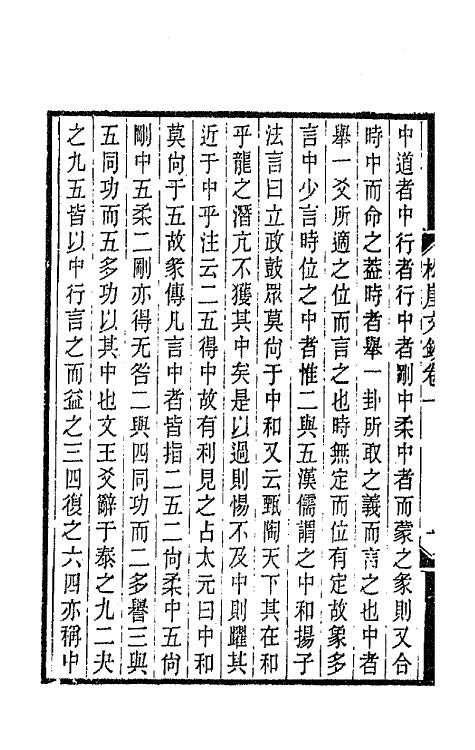 中道者中行者行中者剛中柔中者而蒙之彖則又合
時中而命之葢時者舉一卦所取之義而言之也中者
舉一爻所適之位而言之也時無定而位有定故象多
言中少言時位之中者惟二與五漢儒謂之中和揚子
法言曰立政鼓眾莫尙于中和又云甄陶天下其在和
乎龍之潛亢不獲其中矣是以過則惕不及中則躍其
近于中乎注云二五得中故有利見之占太元曰中和
莫尙于五故彖傳凡言中者皆指二五二尙柔中五尙
剛中五柔二剛亦得无咎二與四同功而二多譽三與
五同功而五多功以其中也文王爻辭于泰之九二夬
之九五皆以中行言之而益之三四復之六四亦稱中
松崖文鈔卷一